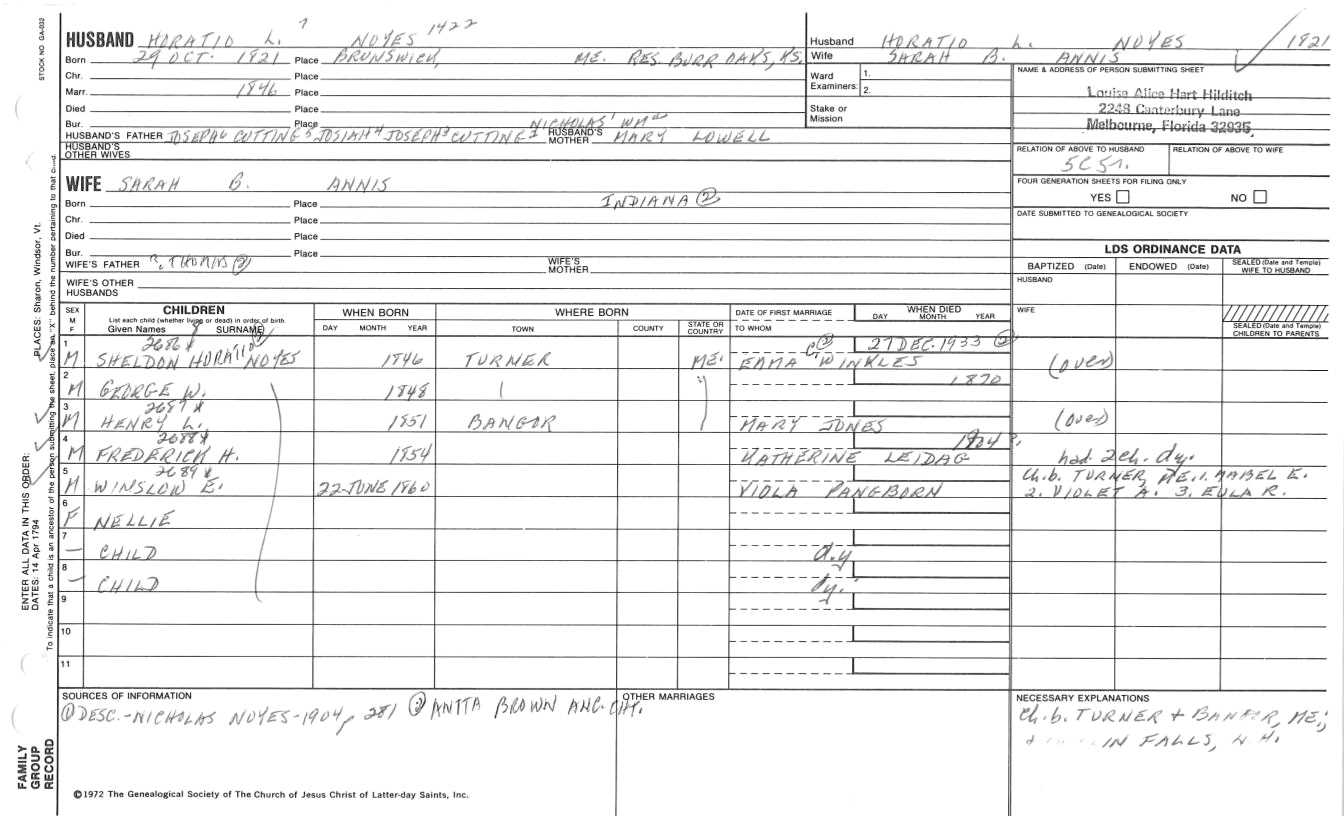 STOCK NO. GA-032
HUSBAND HORATIO L. 7 NOYES 1422
Born 29 OCT. 1821 Place BRUNSWICK, ME. RES. BURR OAKS, KS.
Chr. Place
Marr. 1846 Place
Died Place
Bur. Place
HUSBAND'S FATHER JOSEPH6 CUTTING5 JOSIAH4 JOSEPH3 CUTTING2 NICHOLAS1 WM HUSBAND'S MOTHER MARY LOWELL
HUSBAND'S OTHER WIVES
WIFE SARAH B. ANNIS
Born Place INDIANA (2)
Chr. Place
Died Place
Bur. Place
WIFE'S FATHER ?, THOMAS (2) WIFE'S MOTHER
WIFE'S OTHER HUSBANDS
Husband HORATIO L. NOYES 1821
Wife SARAH B. ANNIS
Ward Examiners 1. 2.
Stake or Mission
NAME & ADDRESS OF PERSON SUBMITTING SHEET
Louise Alice Hart Hilditch
2248 Canterbury Lane
Melbourne, Florida 32935
RELATION OF ABOVE TO HUSBAND RELATION OF ABOVE TO WIFE
5C5r.
FOUR GENERATION SHEETS FOR FILING ONLY
YES NO
DATE SUBMITTED TO GENEALOGICAL SOCIETY
LDS ORDINANCE DATA
BAPTIZED (Date) ENDOWED (Date) SEALED (Date and Temple) WIFE TO HUSBAND
HUSBAND
WIFE
SEALED (Date and Temple) CHILDREN TO PARENTS
SEX M F CHILDREN WHEN BORN WHERE BORN DATE OF FIRST MARRIAGE WHEN DIED
List each child (whether living or dead) in order of birth
Given Names SURNAME DAY MONTH YEAR TOWN COUNTY STATE OR COUNTRY TO WHOM DAY MONTH YEAR
1 2686x 8 (2) 27 DEC. 1933 (2)
M SHELDON HORATIO NOYES 1846 TURNER ME. EMMA C(2) WINKLES (over)
2 1870
M GEORGE W. 1848 "
3 2687x
M HENRY L. 1851 BANGOR MARY JONES (over)
4 2688x 1904?
M FREDERICK H. 1854 KATHERINE LEIDAG had 2ch. dy.
5 2689x
M WINSLOW E. 22 JUNE 1860 VIOLA PANGBORN Ch.b. TURNER, ME. 1. MABEL E. 2. VIOLET A. 3. EULA R.
6
F NELLIE
7
— CHILD d.y
8
— CHILD dy.
9
10
11
SOURCES OF INFORMATION
(1) DESC.-NICHOLAS NOYES-1904, 281 (2) ANITA BROWN ANC. CHT.
OTHER MARRIAGES
NECESSARY EXPLANATIONS
Ch.b. TURNER + BANGOR, ME.;
IN FALLS, N.H.
©1972 The Genealogical Society of The Church of Jesus Christ of Latter-day Saints, Inc.
PLACES: Sharon, Windsor, Vt.
ENTER ALL DATA IN THIS ORDER:
DATES: 14 Apr 1794
To indicate that a child is an ancestor of the person submitting the sheet, place an "X" behind the number pertaining to that child.
FAMILY GROUP RECORD